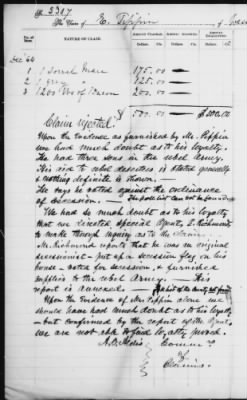 No. 3387
The Claim of E. Pippin, of
No. NATURE OF CLAIM. AMOUNT CLAIMED. AMOUNT ALLOWED. AMOUNT DISALLOWED.
Dolls. Cts. Dolls. Cts. Dolls. Cts.
1 1 Sorrel Mare 175.00
2 1 Grey 125.00
3 1200 lbs of Bacon 200.00
$ 500.00 $500.00
Claim rejected.
Upon the Evidence as furnished by Mr. Pippin
we have much doubt as to his loyalty.
He had three sons in the rebel Army.
His aid to rebel deserters is stated generally
& nothing definite is known.
He says he voted against the ordinance
of secession. — The poll list can not be found
We had so much doubt as to his loyalty
that we directed special Agent, Richmond
to make through inquiry as to the same.
Mr. Richmond reports that he was an original
secessionist - put up a secession flag on his
house - voted for secession & furnished
supplies to the rebel Army. — His
report is annexed.
Upon the Evidence of Mr. Pippin alone we
should have had much doubt as to his loyalty
- but confirmed by the report of the Agent,
we are not able to find loyalty proved.
A. O. Aldis Comms
of
Claims.